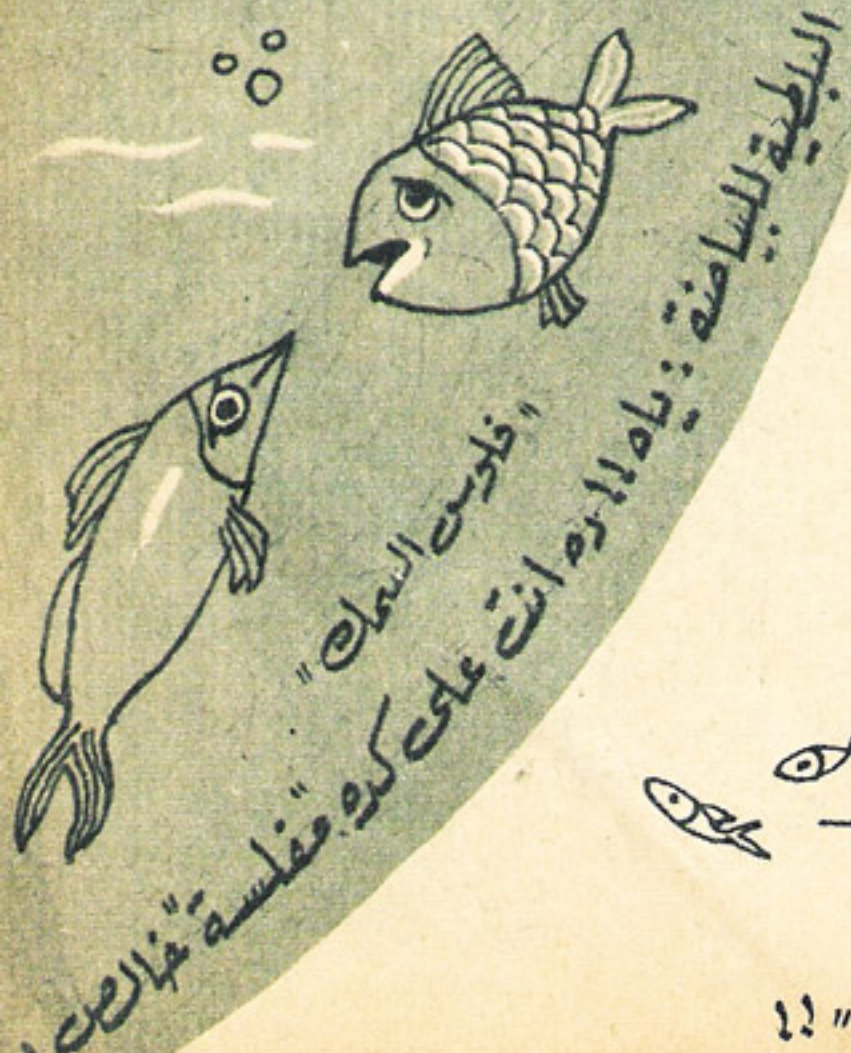 "فلوس السمك"
البلطية للبياضة : ياه !! ده انت على كده "مفلسة" خالص
" !!